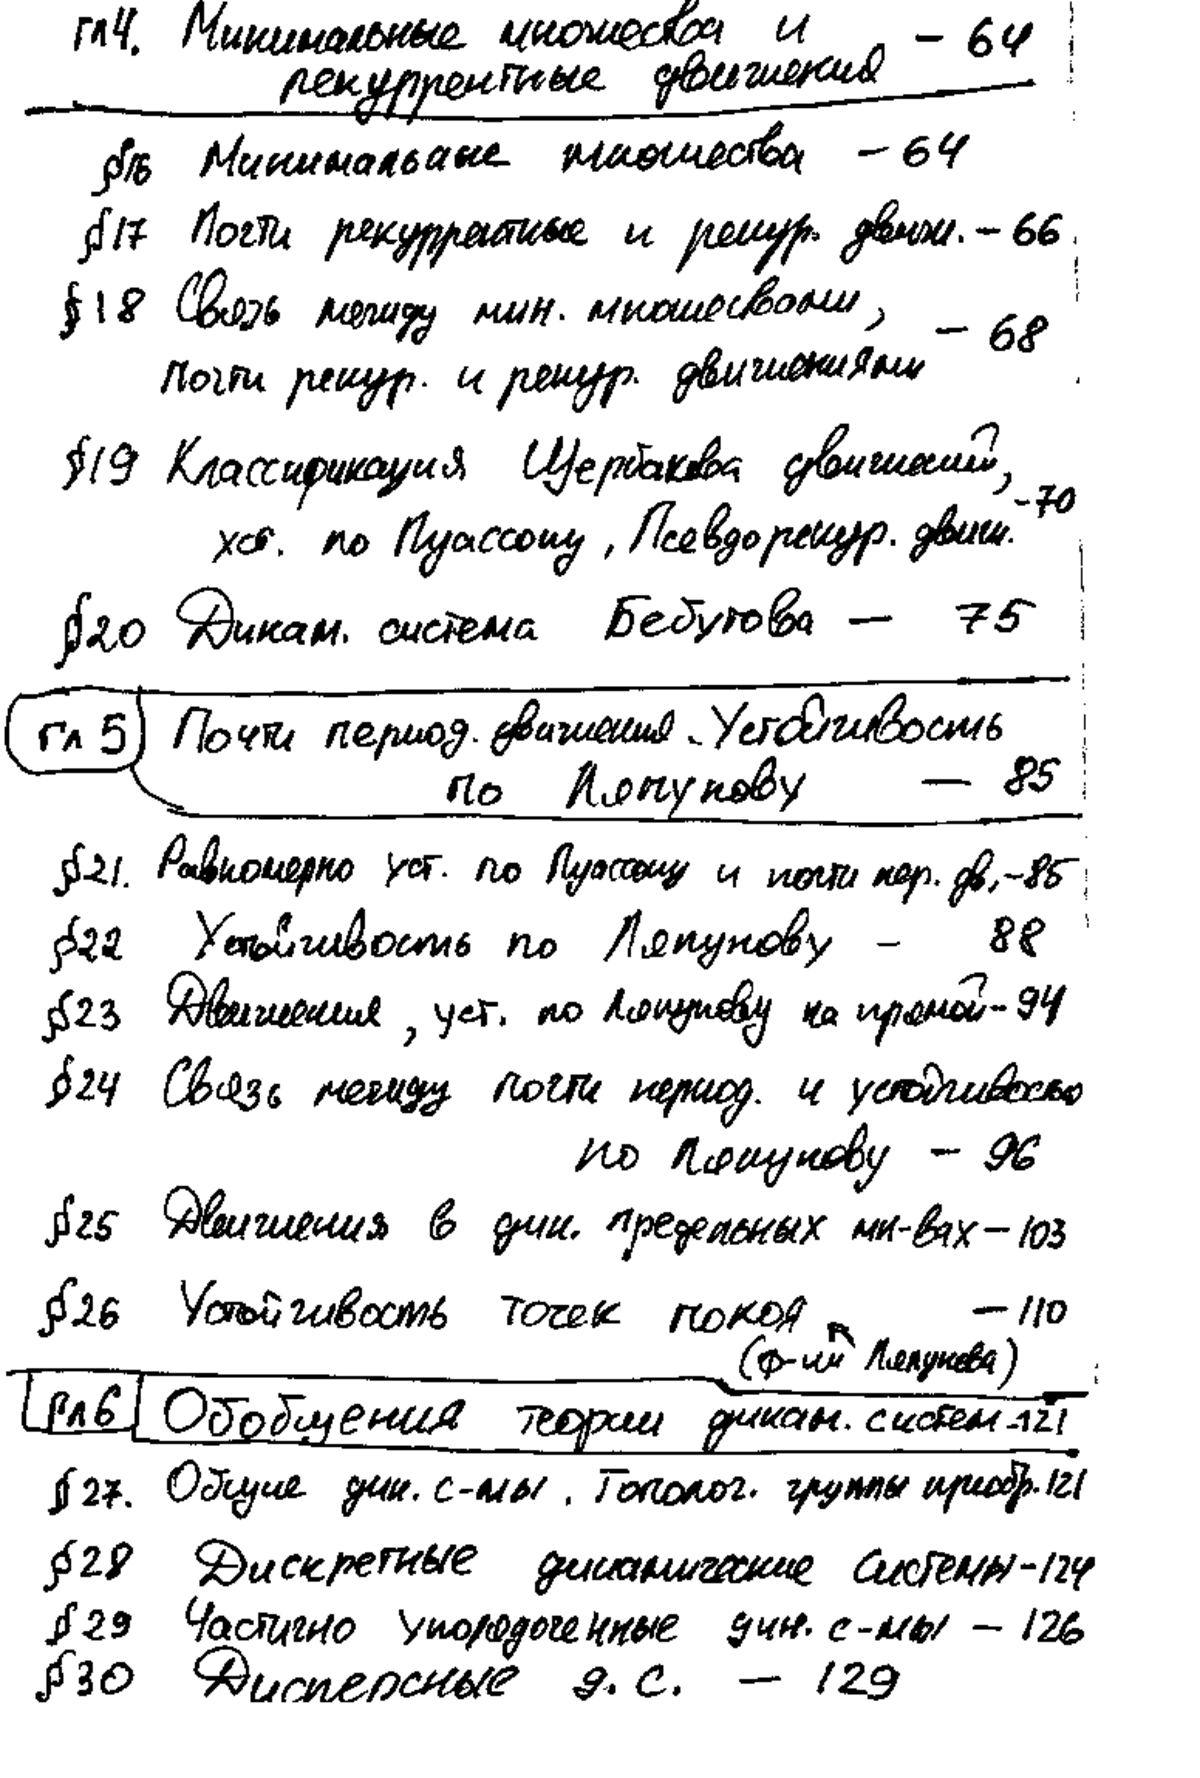 гл4. Минимальные множества и - 64
рекуррентные движения
§16 Минимальные множества - 64
§17 Почти рекуррентные и рекур. движ. - 66
§18 Связь между мин. множествами,
- 68
почти рекур. и рекур. движениями
§19 Классификация Щербакова движений,
-70
уст. по Пуассону, Псевдорекур. движ.
§20 Динам. система Бебутова — 75
гл 5 Почти период. движения. Устойчивость
по Ляпунову — 85
§21. Равномерно уст. по Пуассону и почти пер. дв. -85
§22 Устойчивость по Ляпунову - 88
§23 Движения, уст. по Ляпунову на прямой - 94
§24 Связь между почти период. и устойчивостью
по Ляпунову - 96
§25 Движения в дин. предельных мн-вах - 103
§26 Устойчивость точек покоя - 110
(ф-ии Ляпунова)
Гл 6 Обобщения теории динам. систем -121
§27. Общие дин. с-мы. Тополог. группы преобр. 121
§28 Дискретные динамические системы - 124
§29 Частично упорядоченные дин. с-мы - 126
§30 Дисперсные д. с. — 129